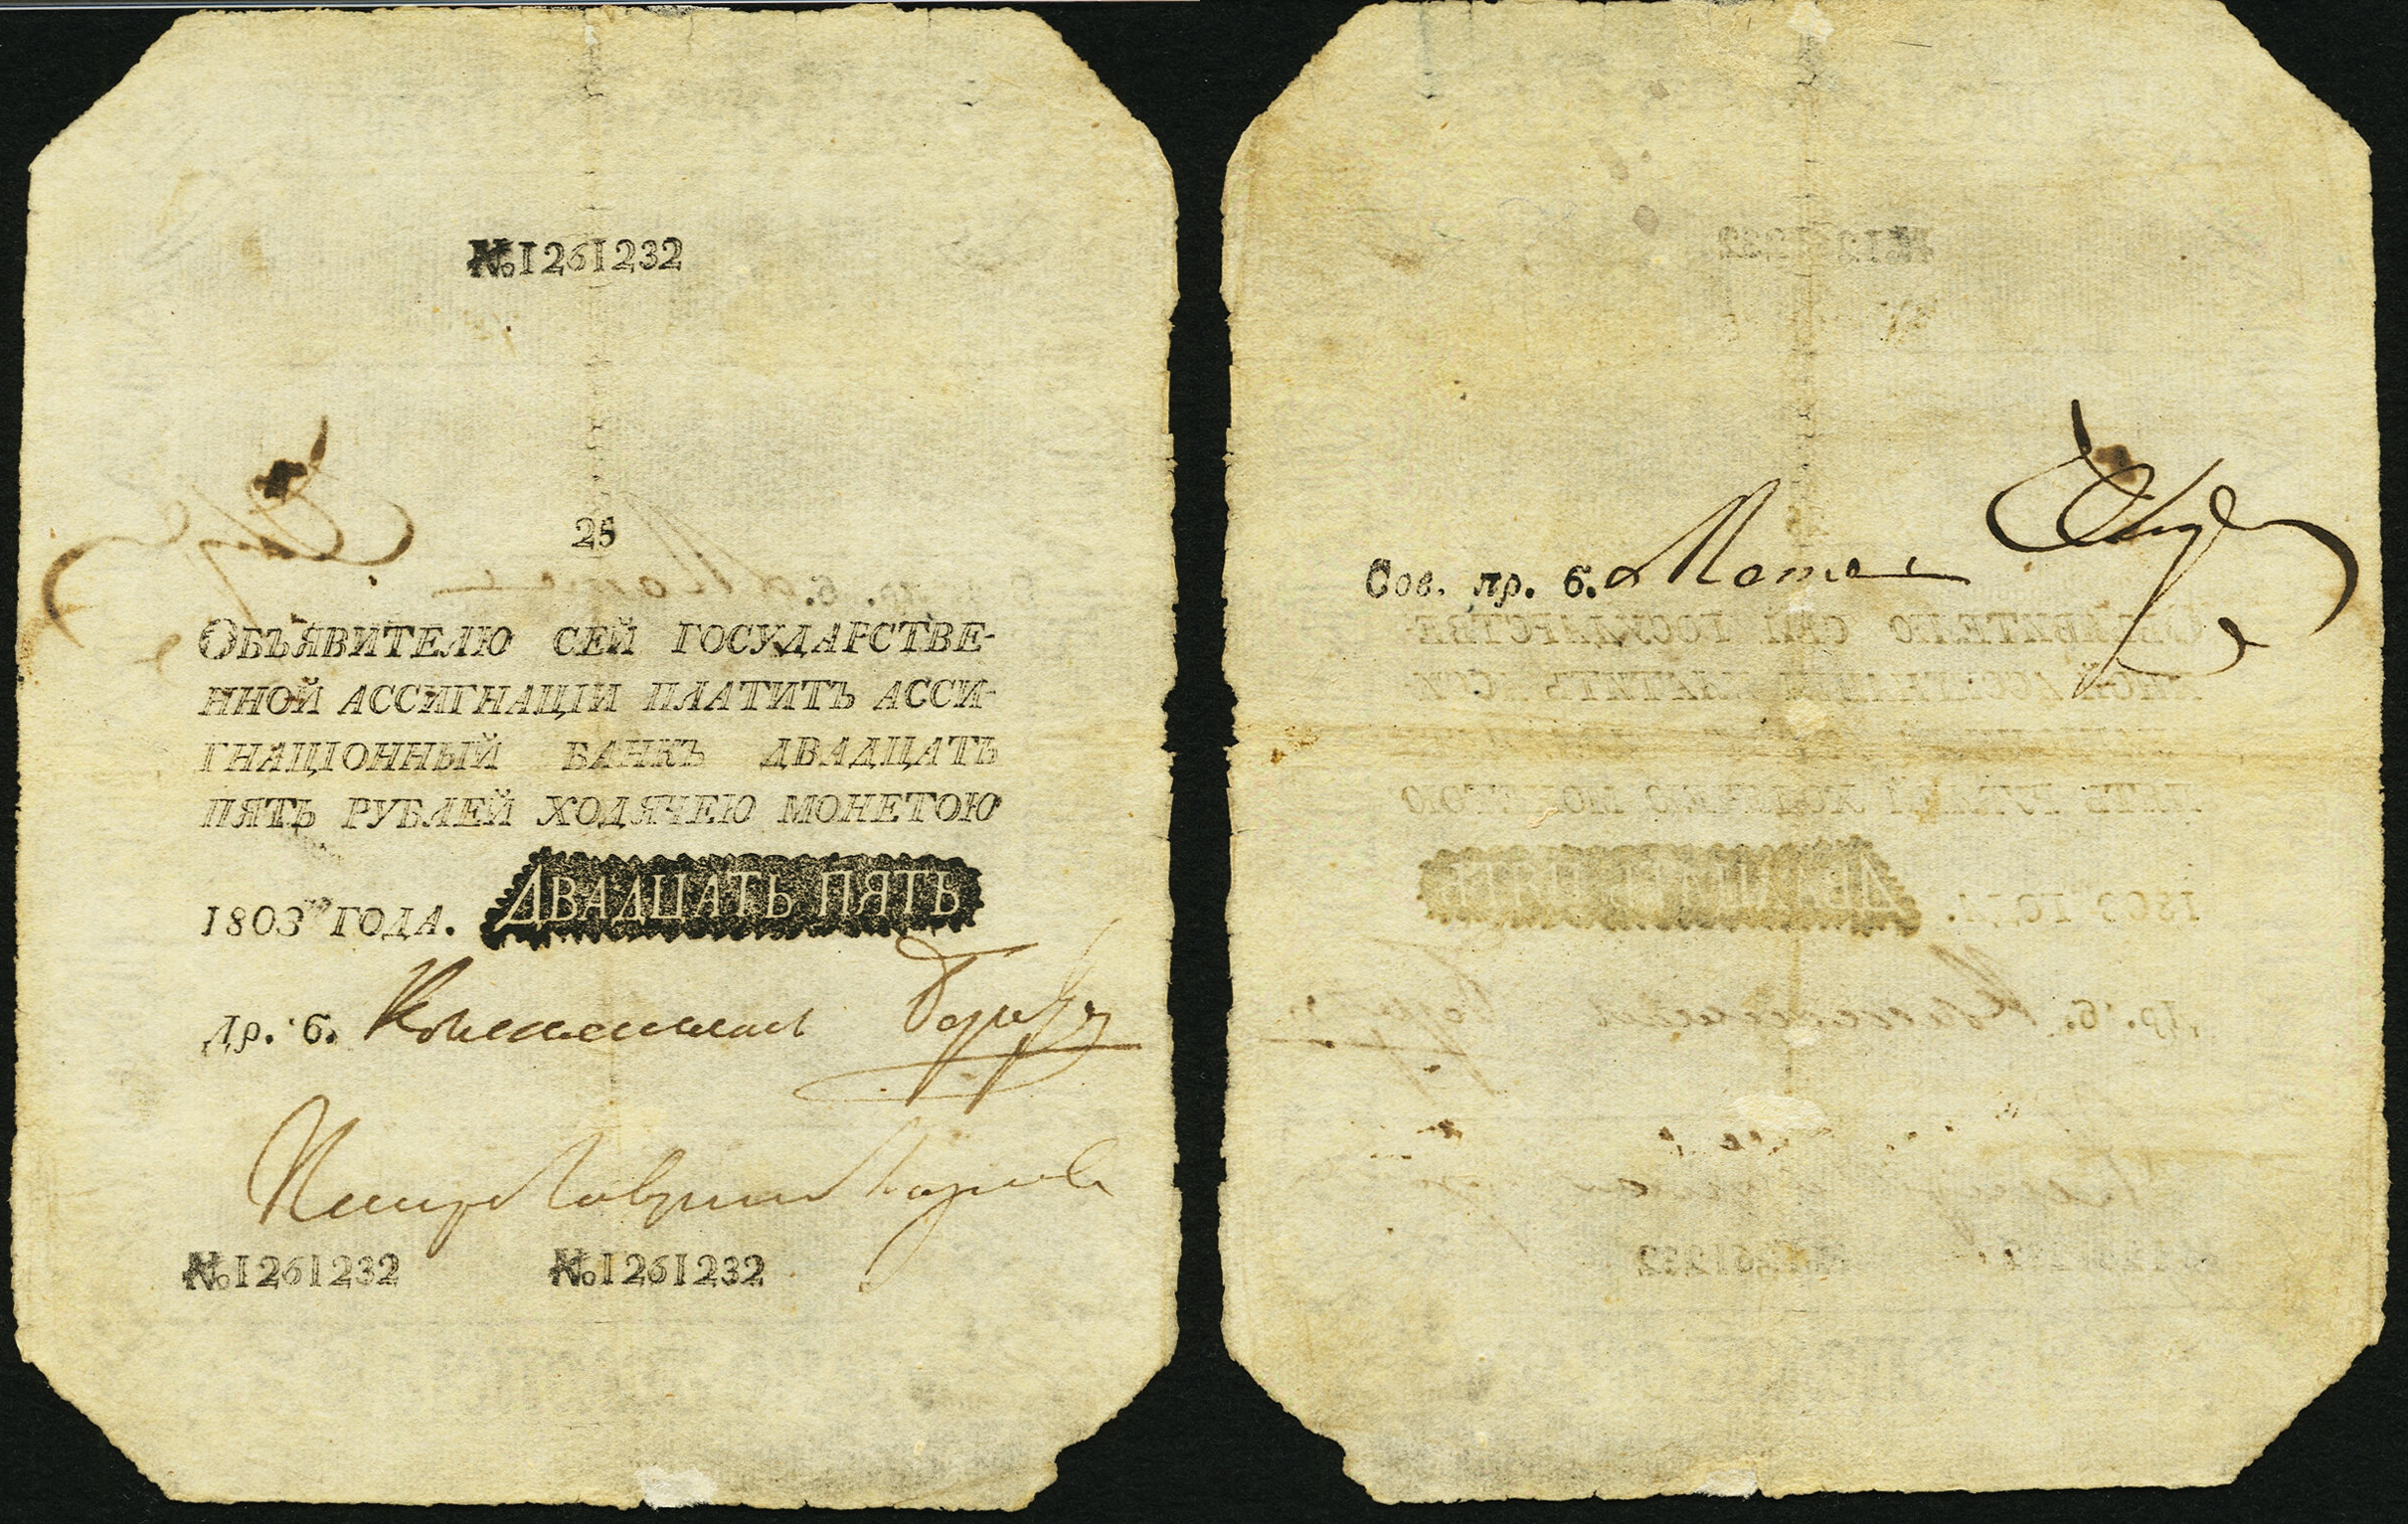 №1261232
25
ОБЪЯВИТЕЛЮ СЕЙ ГОСУДАРСТВЕ-
ННОЙ АССИГНАЦІИ ПЛАТИТЪ АССИ-
ГНАЦІОННЫЙ БАНКЪ ДВАДЦАТЬ
ПЯТЬ РУБЛЕЙ ХОДЯЧЕЮ МОНЕТОЮ
1803го ГОДА. ДВАДЦАТЬ ПЯТЬ
Др. б.
№1261232 №1261232
Сов. пр. б.